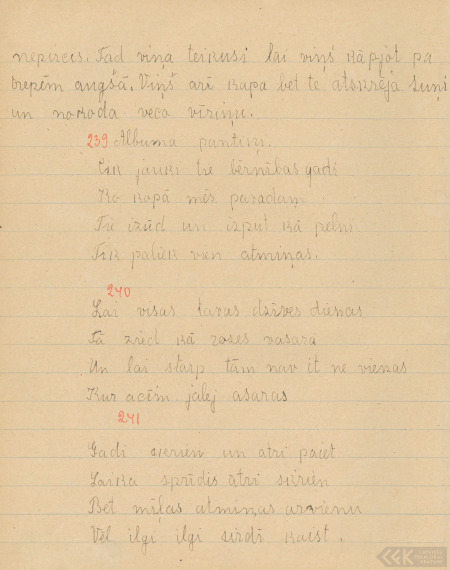 nepirces. Tad viņa teikusi lai viņš kāpjot pa
trepēm augšā. Viņš arī kapa bet te atskrēja suņi
un nokoda veco vīriņu.
239 Albuma pantiņi.
Cik jauki tie bērnības gadi
Ko kopā mēs pavadam
Tie izūd un izput kā pelni
Tik paliek vien atmiņas.
240
Lai visas tavas dzīves dienas
Tā zied kā rozes vasarā
Un lai starp tām nav it ne vienas
Kur acīm jālej asaras
241
Gadi skrien un ātri paiet
Laika sprīdis ātri skrien
Bet mīļas atmiņas arvienu
Vēl ilgi ilgi sirdī kaist.